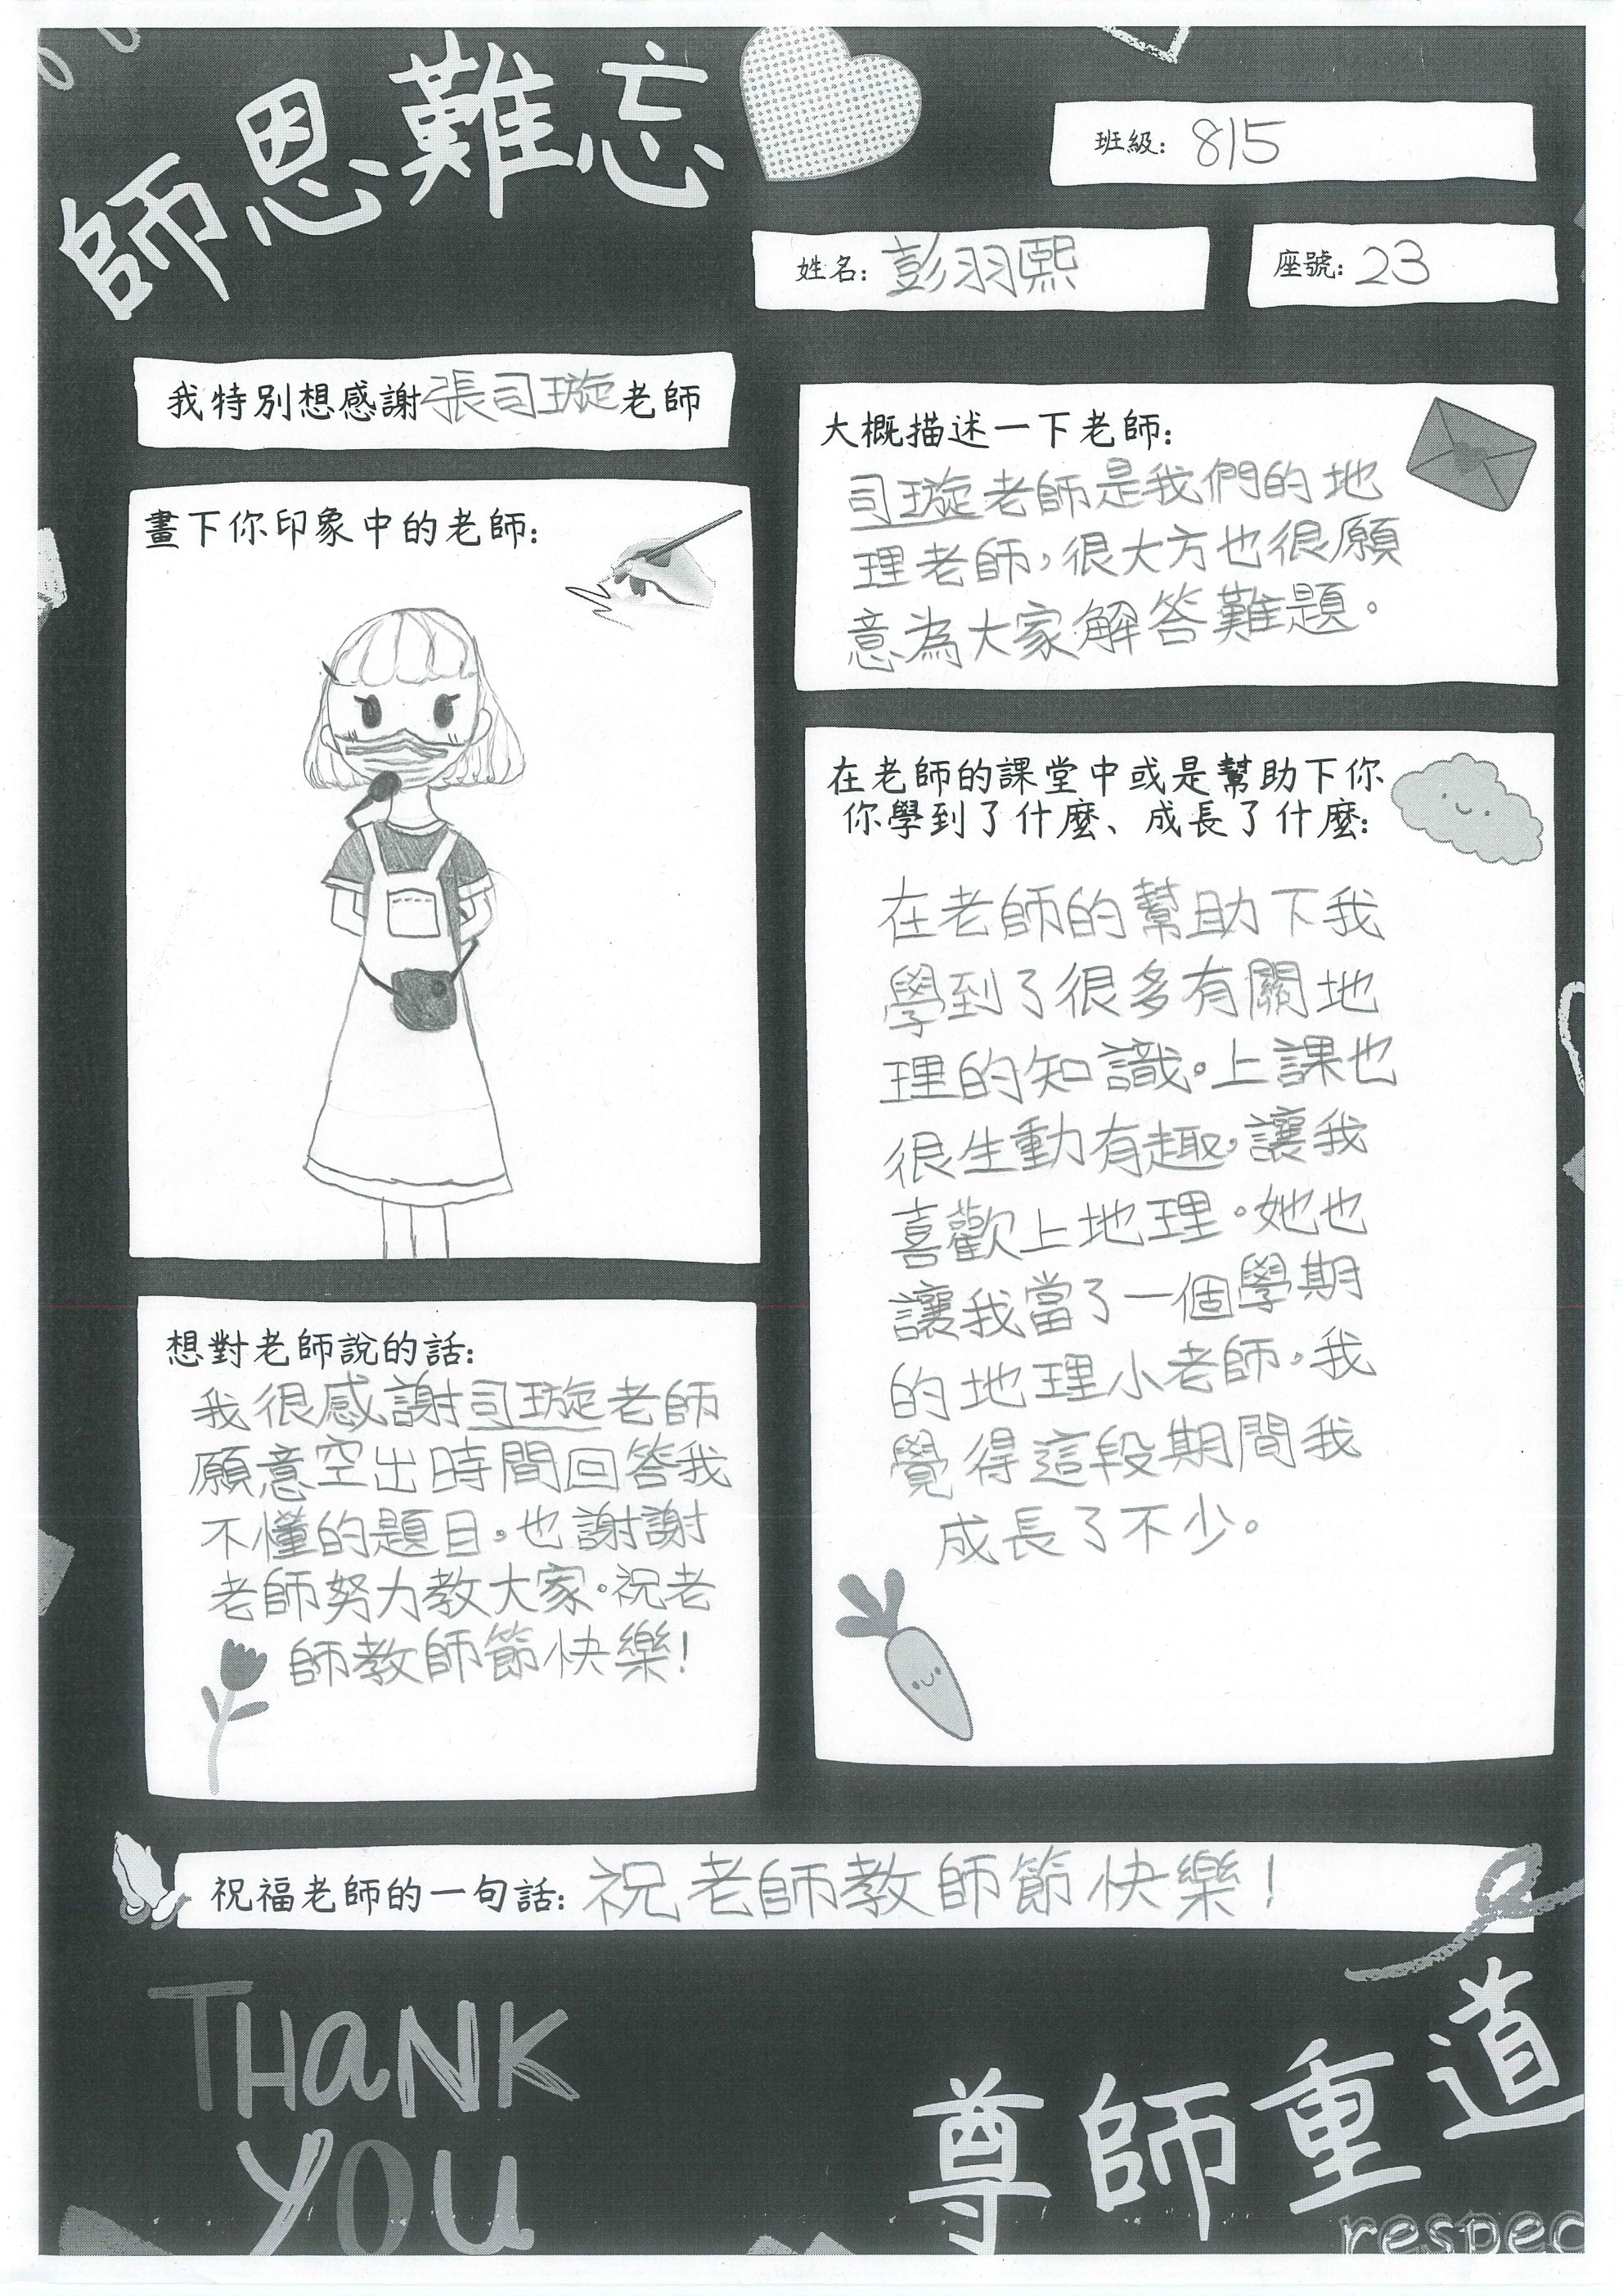 師恩難忘
班級: 815
姓名: 彭羽熙
座號: 23
我特別想感謝張司璇老師
畫下你印象中的老師:
大概描述一下老師:
司璇老師是我們的地
理老師,很大方也很願
意為大家解答難題。
在老師的課堂中或是幫助下你
你學到了什麼、成長了什麼:
在老師的幫助下我
學到了很多有關地
理的知識。上課也
很生動有趣,讓我
喜歡上地理。她也
讓我當了一個學期
的地理小老師。我
覺得這段期間我
成長了不少。
想對老師說的話:
我很感謝司璇老師
願意空出時間回答我
不懂的題目。也謝謝
老師努力教大家。祝老
師教師節快樂!
祝福老師的一句話: 祝老師教師節快樂!
THANK
YOU
尊師重道
respec